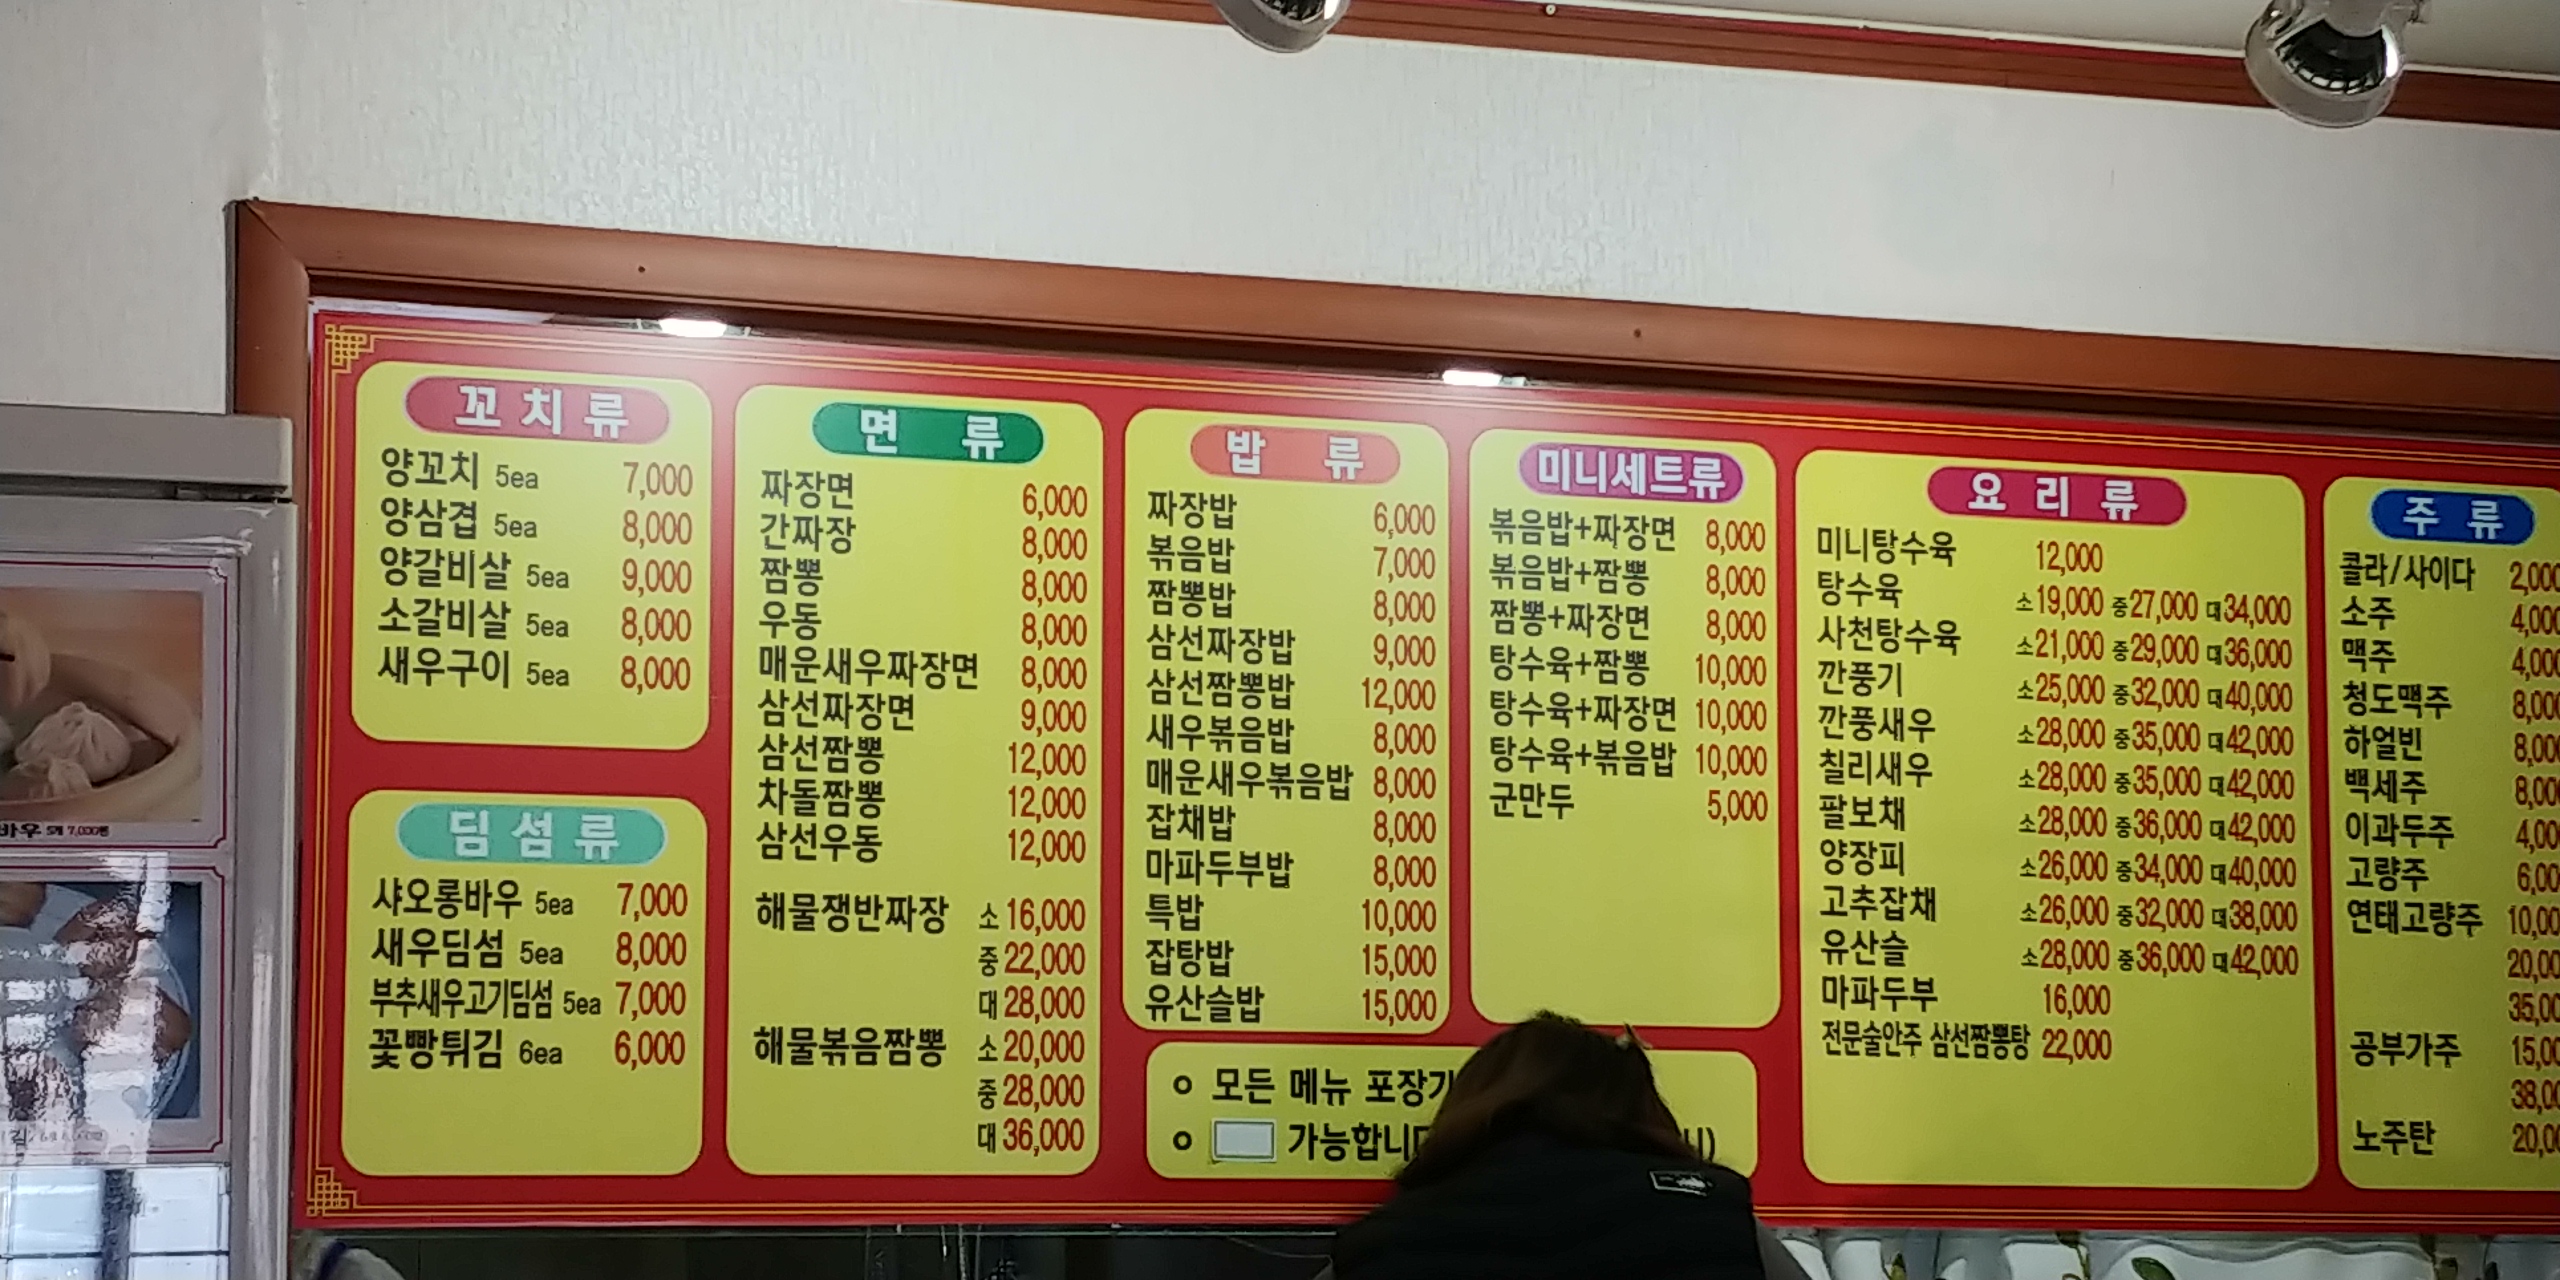 꼬치류
양꼬치 5ea 7,000
양삼겹 5ea 8,000
양갈비살 5ea 9,000
소갈비살 5ea 8,000
새우구이 5ea 8,000
딤섬류
샤오롱바우 5ea 7,000
새우딤섬 5ea 8,000
부추새우고기딤섬 5ea 7,000
꽃빵튀김 6ea 6,000
면류
짜장면 6,000
간짜장 8,000
짬뽕 8,000
우동 8,000
매운새우짜장면 8,000
삼선짜장면 9,000
삼선짬뽕 12,000
차돌짬뽕 12,000
삼선우동 12,000
해물쟁반짜장 소 16,000
중 22,000
대 28,000
해물볶음짬뽕 소 20,000
중 28,000
대 36,000
밥류
짜장밥 6,000
볶음밥 7,000
짬뽕밥 8,000
삼선짜장밥 9,000
삼선짬뽕밥 12,000
새우볶음밥 8,000
매운새우볶음밥 8,000
잡채밥 8,000
마파두부밥 8,000
특밥 10,000
잡탕밥 15,000
유산슬밥 15,000
미니세트류
볶음밥+짜장면 8,000
볶음밥+짬뽕 8,000
짬뽕+짜장면 8,000
탕수육+짬뽕 10,000
탕수육+짜장면 10,000
탕수육+볶음밥 10,000
군만두 5,000
모든 메뉴 포장
가능합니
요리류
미니탕수육 12,000
탕수육 소19,000 중27,000 대34,000
사천탕수육 소21,000 중29,000 대36,000
깐풍기 소25,000 중32,000 대40,000
깐풍새우 소28,000 중35,000 대42,000
칠리새우 소28,000 중35,000 대42,000
팔보채 소28,000 중36,000 대42,000
양장피 소26,000 중34,000 대40,000
고추잡채 소26,000 중32,000 대38,000
유산슬 소28,000 중36,000 대42,000
마파두부 16,000
전문술안주 삼선짬뽕탕 22,000
주류
콜라/사이다 2,000
소주 4,000
맥주 4,000
청도맥주 8,000
하얼빈 8,000
백세주 8,000
이과두주 4,00
고량주 6,00
연태고량주 10,00
20,00
35,00
공부가주 15,00
38,00
노주탄 20,00
바우 5개 7,000원